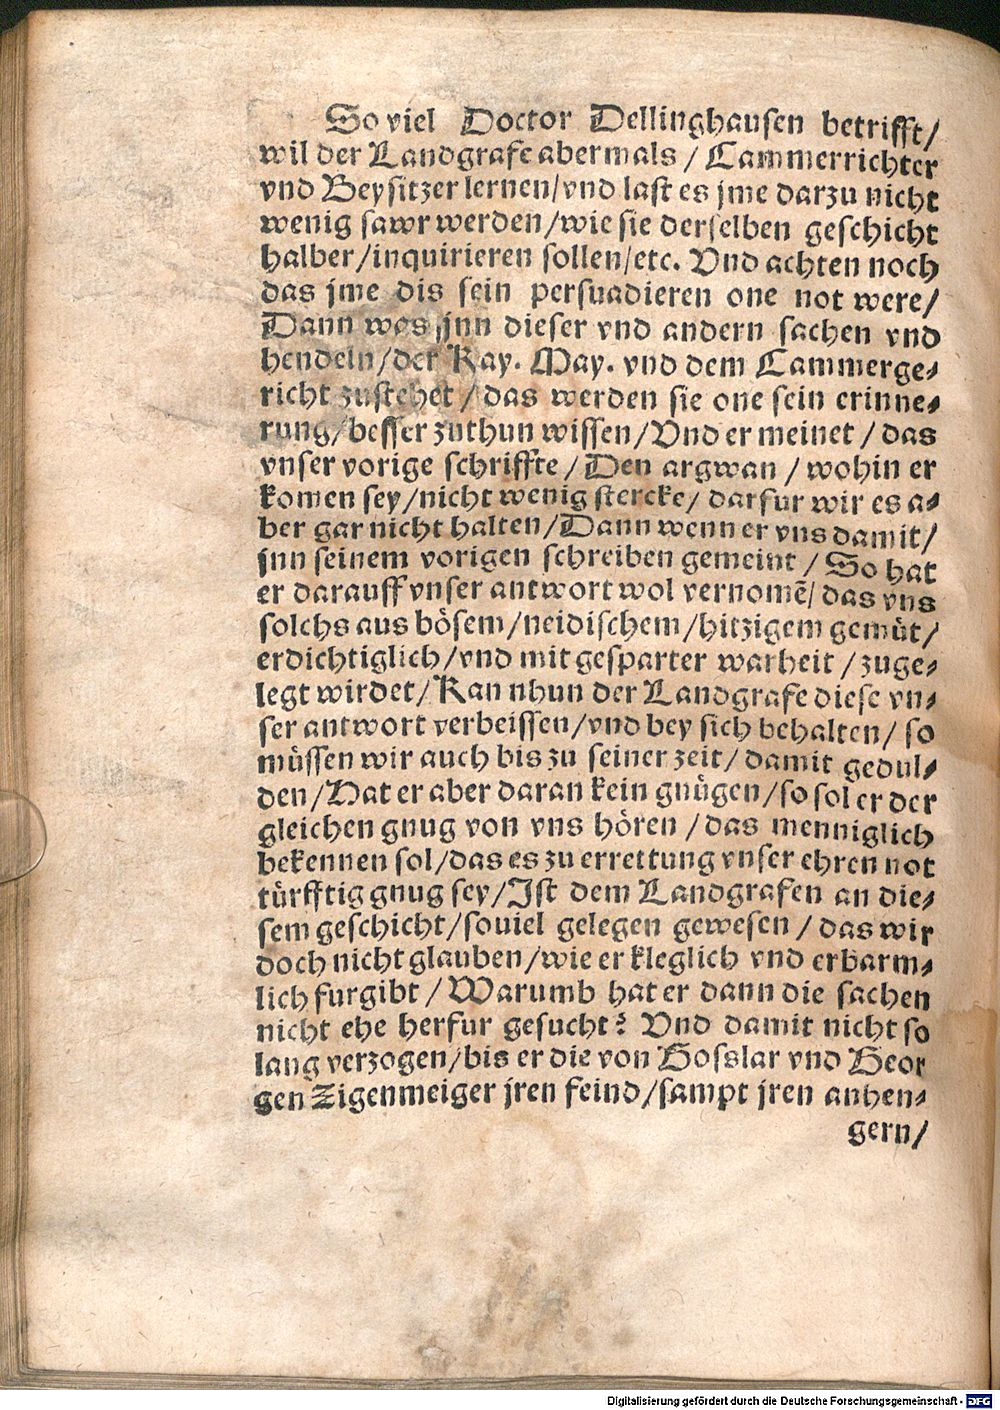 So viel Doctor Dellinghausen betrifft/
wil der Landgrafe abermals / Cammerrichter
vnd Beysitzer lernen/vnd last es jme darzu nicht
wenig sawr werden/wie sie derselben geschicht
halber/inquirieren sollen/etc. Vnd achten noch
das jme dis sein persuadieren one not were/
Dann was jnn dieser vnd andern sachen vnd
hendeln/der Kay. May. vnd dem Cammerge-
richt zustehet / das werden sie one sein erinne-
rung/besser zuthun wissen/Vnd er meinet / das
vnser vorige schriffte / Den argwan / wohin er
komen sey/nicht wenig stercke/ darfur wir es a-
ber gar nicht halten/Dann wenn er vns damit/
jnn seinem vorigen schreiben gemeint / So hat
er darauff vnser antwort wol vernomẽ/ das vns
solchs aus bösem/neidischem/hitzigem gemüt/
erdichtiglich/vnd mit gesparter warheit / zuge-
legt wirdet/Kan nhun der Landgrafe diese vn-
ser antwort verbeissen/vnd bey sich behalten/ so
müssen wir auch bis zu seiner zeit/ damit gedul-
den/Hat er aber daran kein gnügen/so sol er der
gleichen gnug von vns hören / das menniglich
bekennen sol/das es zu errettung vnser ehren not
türfftig gnug sey/Ist dem Landgrafen an die-
sem geschicht/souiel gelegen gewesen / das wir
doch nicht glauben/wie er kleglich vnd erbarm-
lich furgibt / Warumb hat er dann die sachen
nicht ehe herfur gesucht? Vnd damit nicht so
lang verzogen/bis er die von Gosslar vnd Geor
gen Zigenmeiger jren feind/sampt jren anhen-
gern/
Digitalisierung gefördert durch die Deutsche Forschungsgemeinschaft - DFG